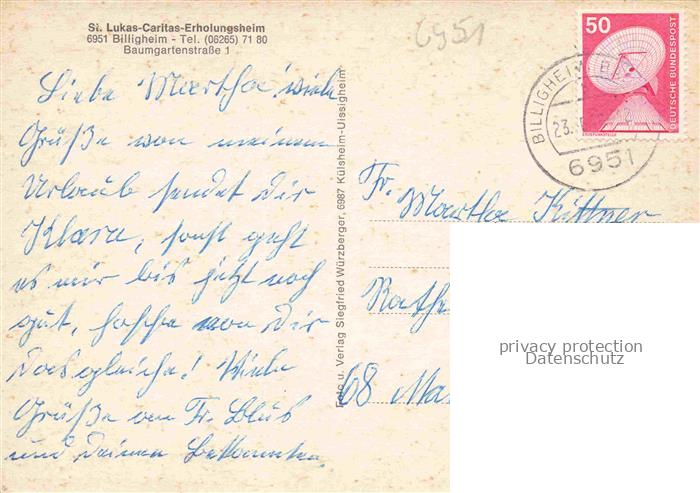 St. Lukas-Caritas-Erholungsheim
6951 Billigheim - Tel. (06265) 71 80
Baumgartenstraße 1
6951
50
DEUTSCHE BUNDESPOST
ERDEFUNKSTELLE
BILLIGHEIM, BA
23.
6951
Liebe Martha! viele
Grüße von meinem
Urlaub sendet Dir
Klara, sonst geht
es mir bis jetzt noch
gut, hoffe von Dir
Das gleiche! Viele
Grüße an Fr. Bläß
und Deinen Bekannten.
Foto u. Verlag Siegfried Würzberger, 6987 Külsheim-Uissigheim
Fr. Martha Kittner
Rathe
68 Ma
privacy protection
Datenschutz